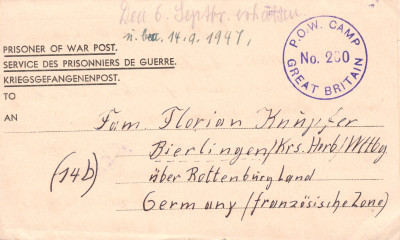 Den 6. Septbr. erhalten
u. bea. 14.9.1947,
PRISONER OF WAR POST.
SERVICE DES PRISONNIERS DE GUERRE.
KRIEGSGEFANGENENPOST.
TO
AN
P.O.W. CAMP
No. 230
GREAT BRITAIN
Fam. Florian Knüpfer
Bierlingen/Krs. Horb/Wttbg
(14b)
über Rottenburg Land
Germany (französische Zone)